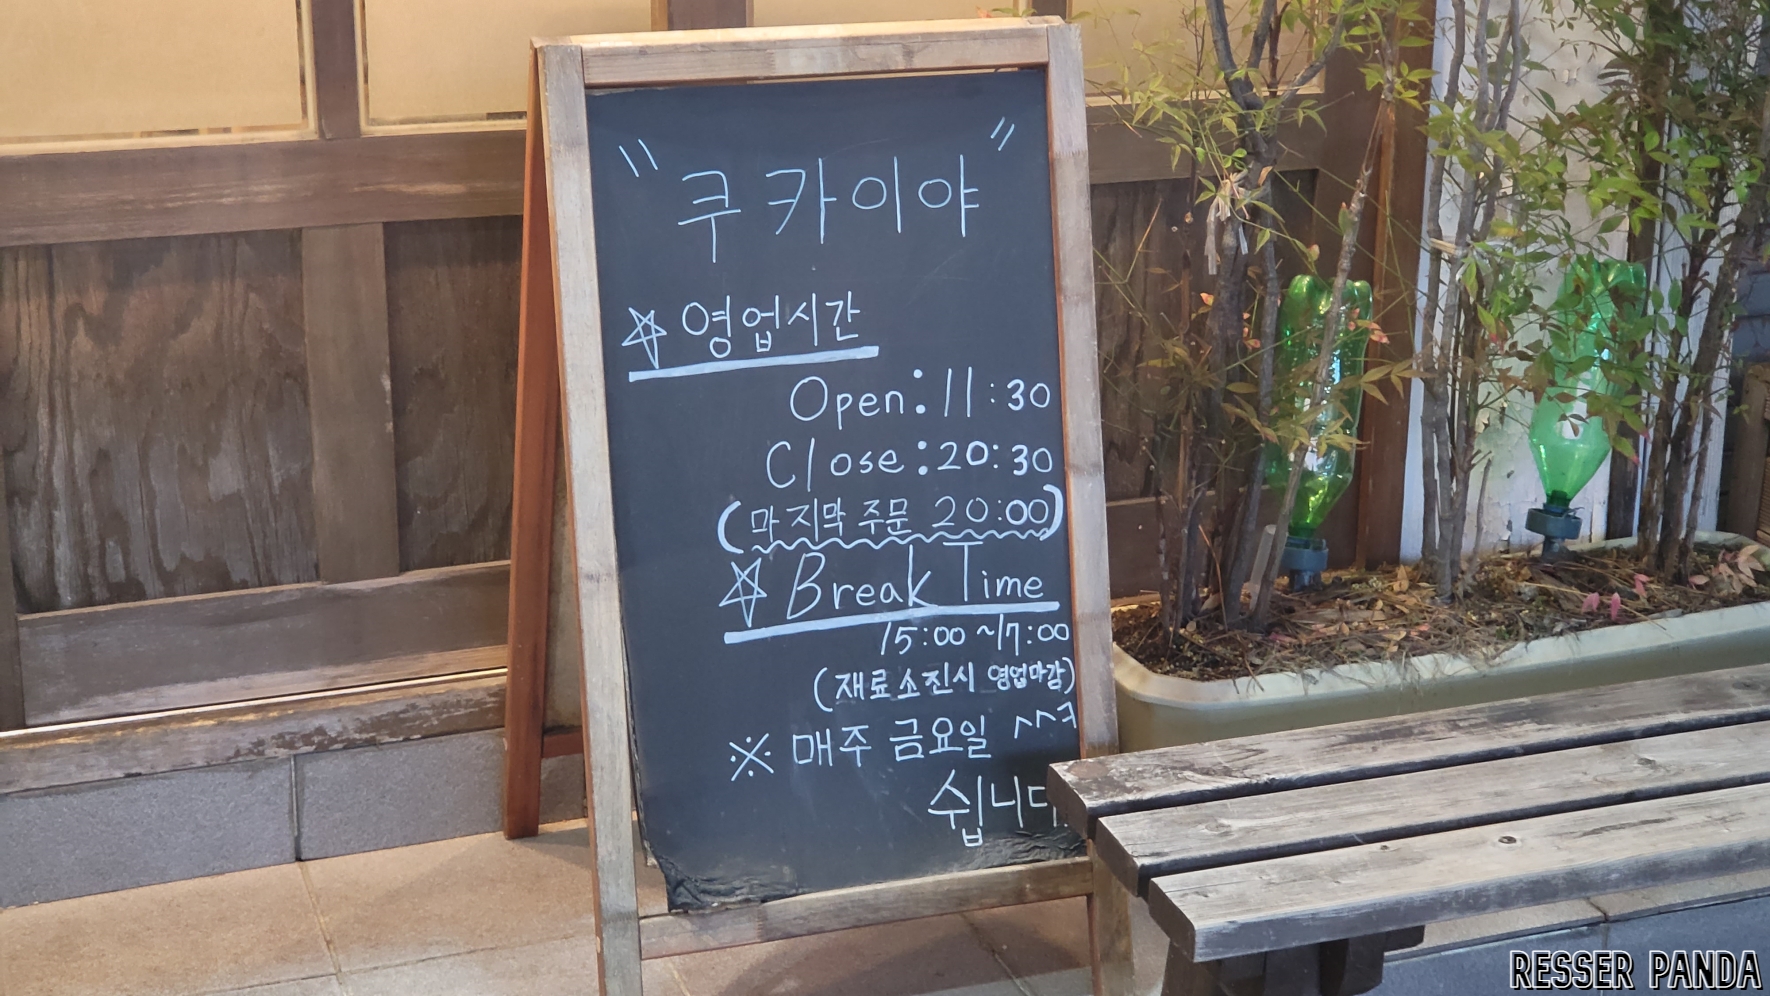 "쿠카이야"
☆ 영업시간
Open : 11 : 30
Close : 20 : 30
(마지막 주문 20:00)
☆ Break Time
15:00 ~ 17:00
(재료소진시 영업마감)
※ 매주 금요일 ^^ㅋ
쉽니다.
RESSER PANDA